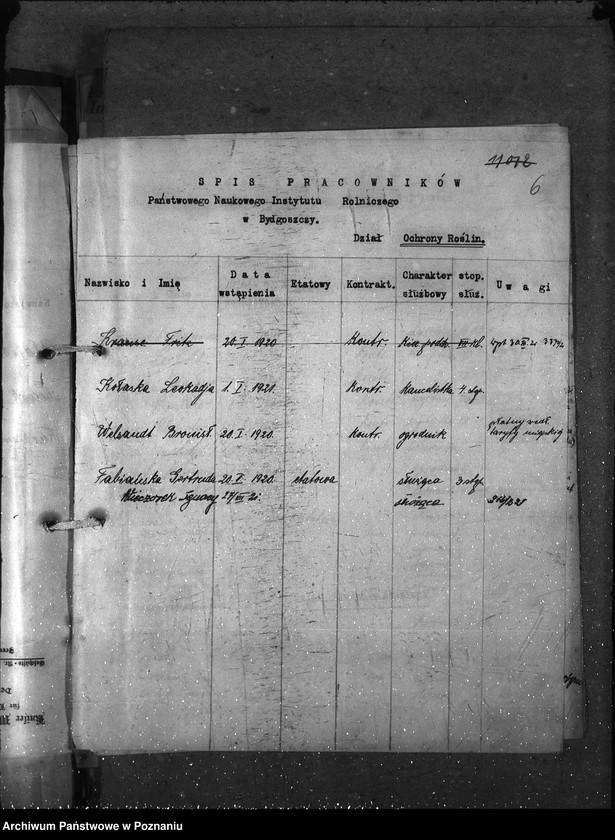 11072
6
SPIS PRACOWNIKÓW
Państwowego Naukowego Instytutu Rolniczego
w Bydgoszczy.
Dział Ochrony Roślin.
Nazwisko i Imię Data wstąpienia Etatowy Kontrakt. Charakter służbowy stop. służ. Uwagi
Krause Fritz 20. I. 1920 Kontr. VII kl.
Kołaska Leokadja 1. I. 1921. Kontr. Kancelistka
Welsandt Bronisł. 20. I. 1920. Kontr. ogrodnik płatny wedł. taryfy miejskiej
Gertruda 20. 1920 etatowa służąca 3. stp.
Wieczorek Ignacy
Archiwum Państwowe w Poznaniu